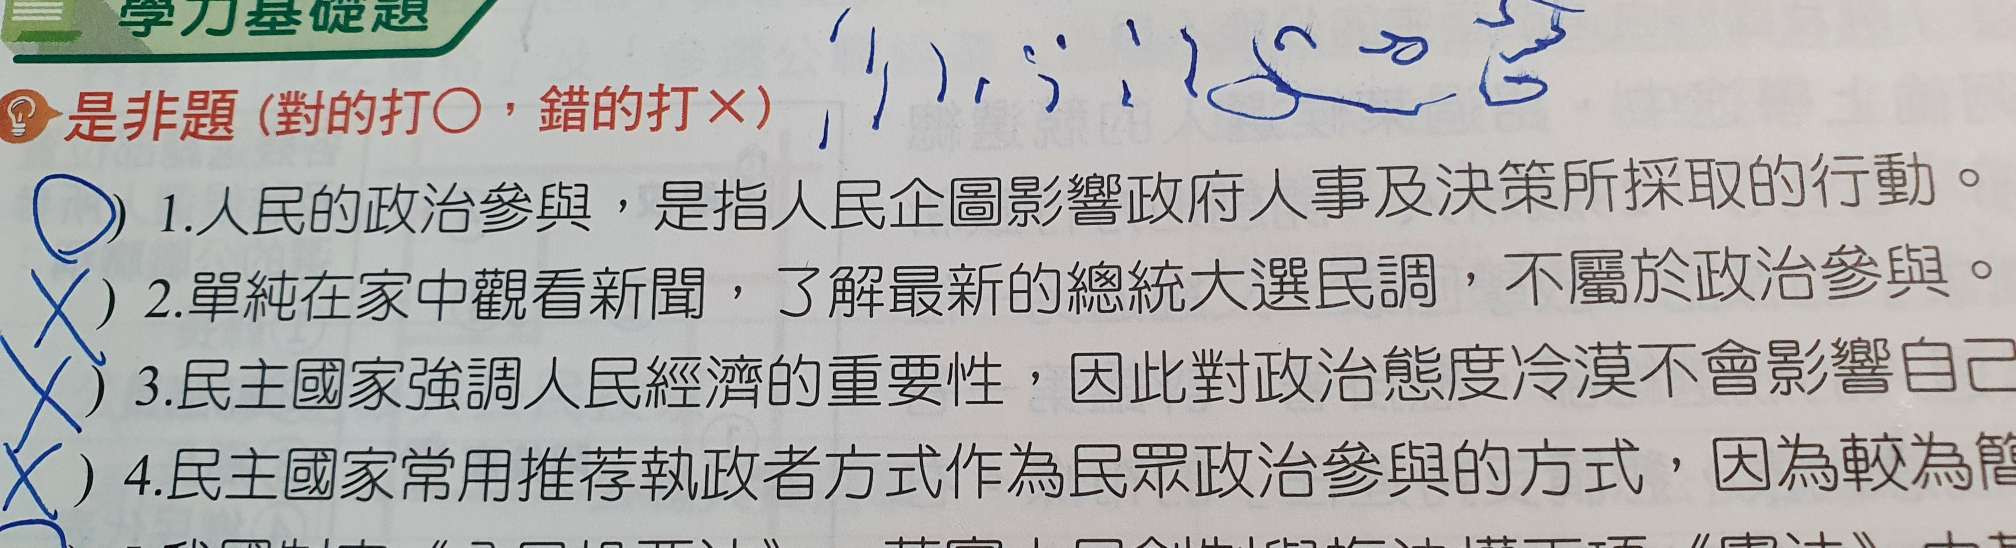 學力基礎題
是非題 (對的打○，錯的打×)
○ ) 1.人民的政治參與，是指人民企圖影響政府人事及決策所採取的行動。
X ) 2.單純在家中觀看新聞，了解最新的總統大選民調，不屬於政治參與。
X ) 3.民主國家強調人民經濟的重要性，因此對政治態度冷漠不會影響自己
X ) 4.民主國家常用推荐執政者方式作為民眾政治參與的方式，因為較為簡